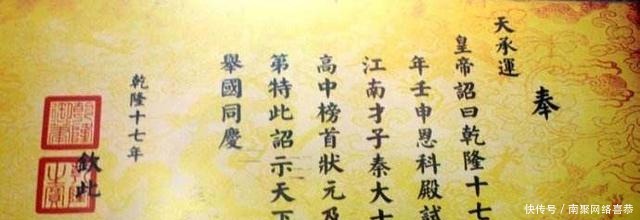 奉
天承運
皇帝詔曰乾隆十七
年壬申恩科殿試
江南才子秦大士
高中榜首狀元及
第特此詔示天下
舉國同慶
乾隆十七年
欽此
快传号 / 南聚网络喜恭